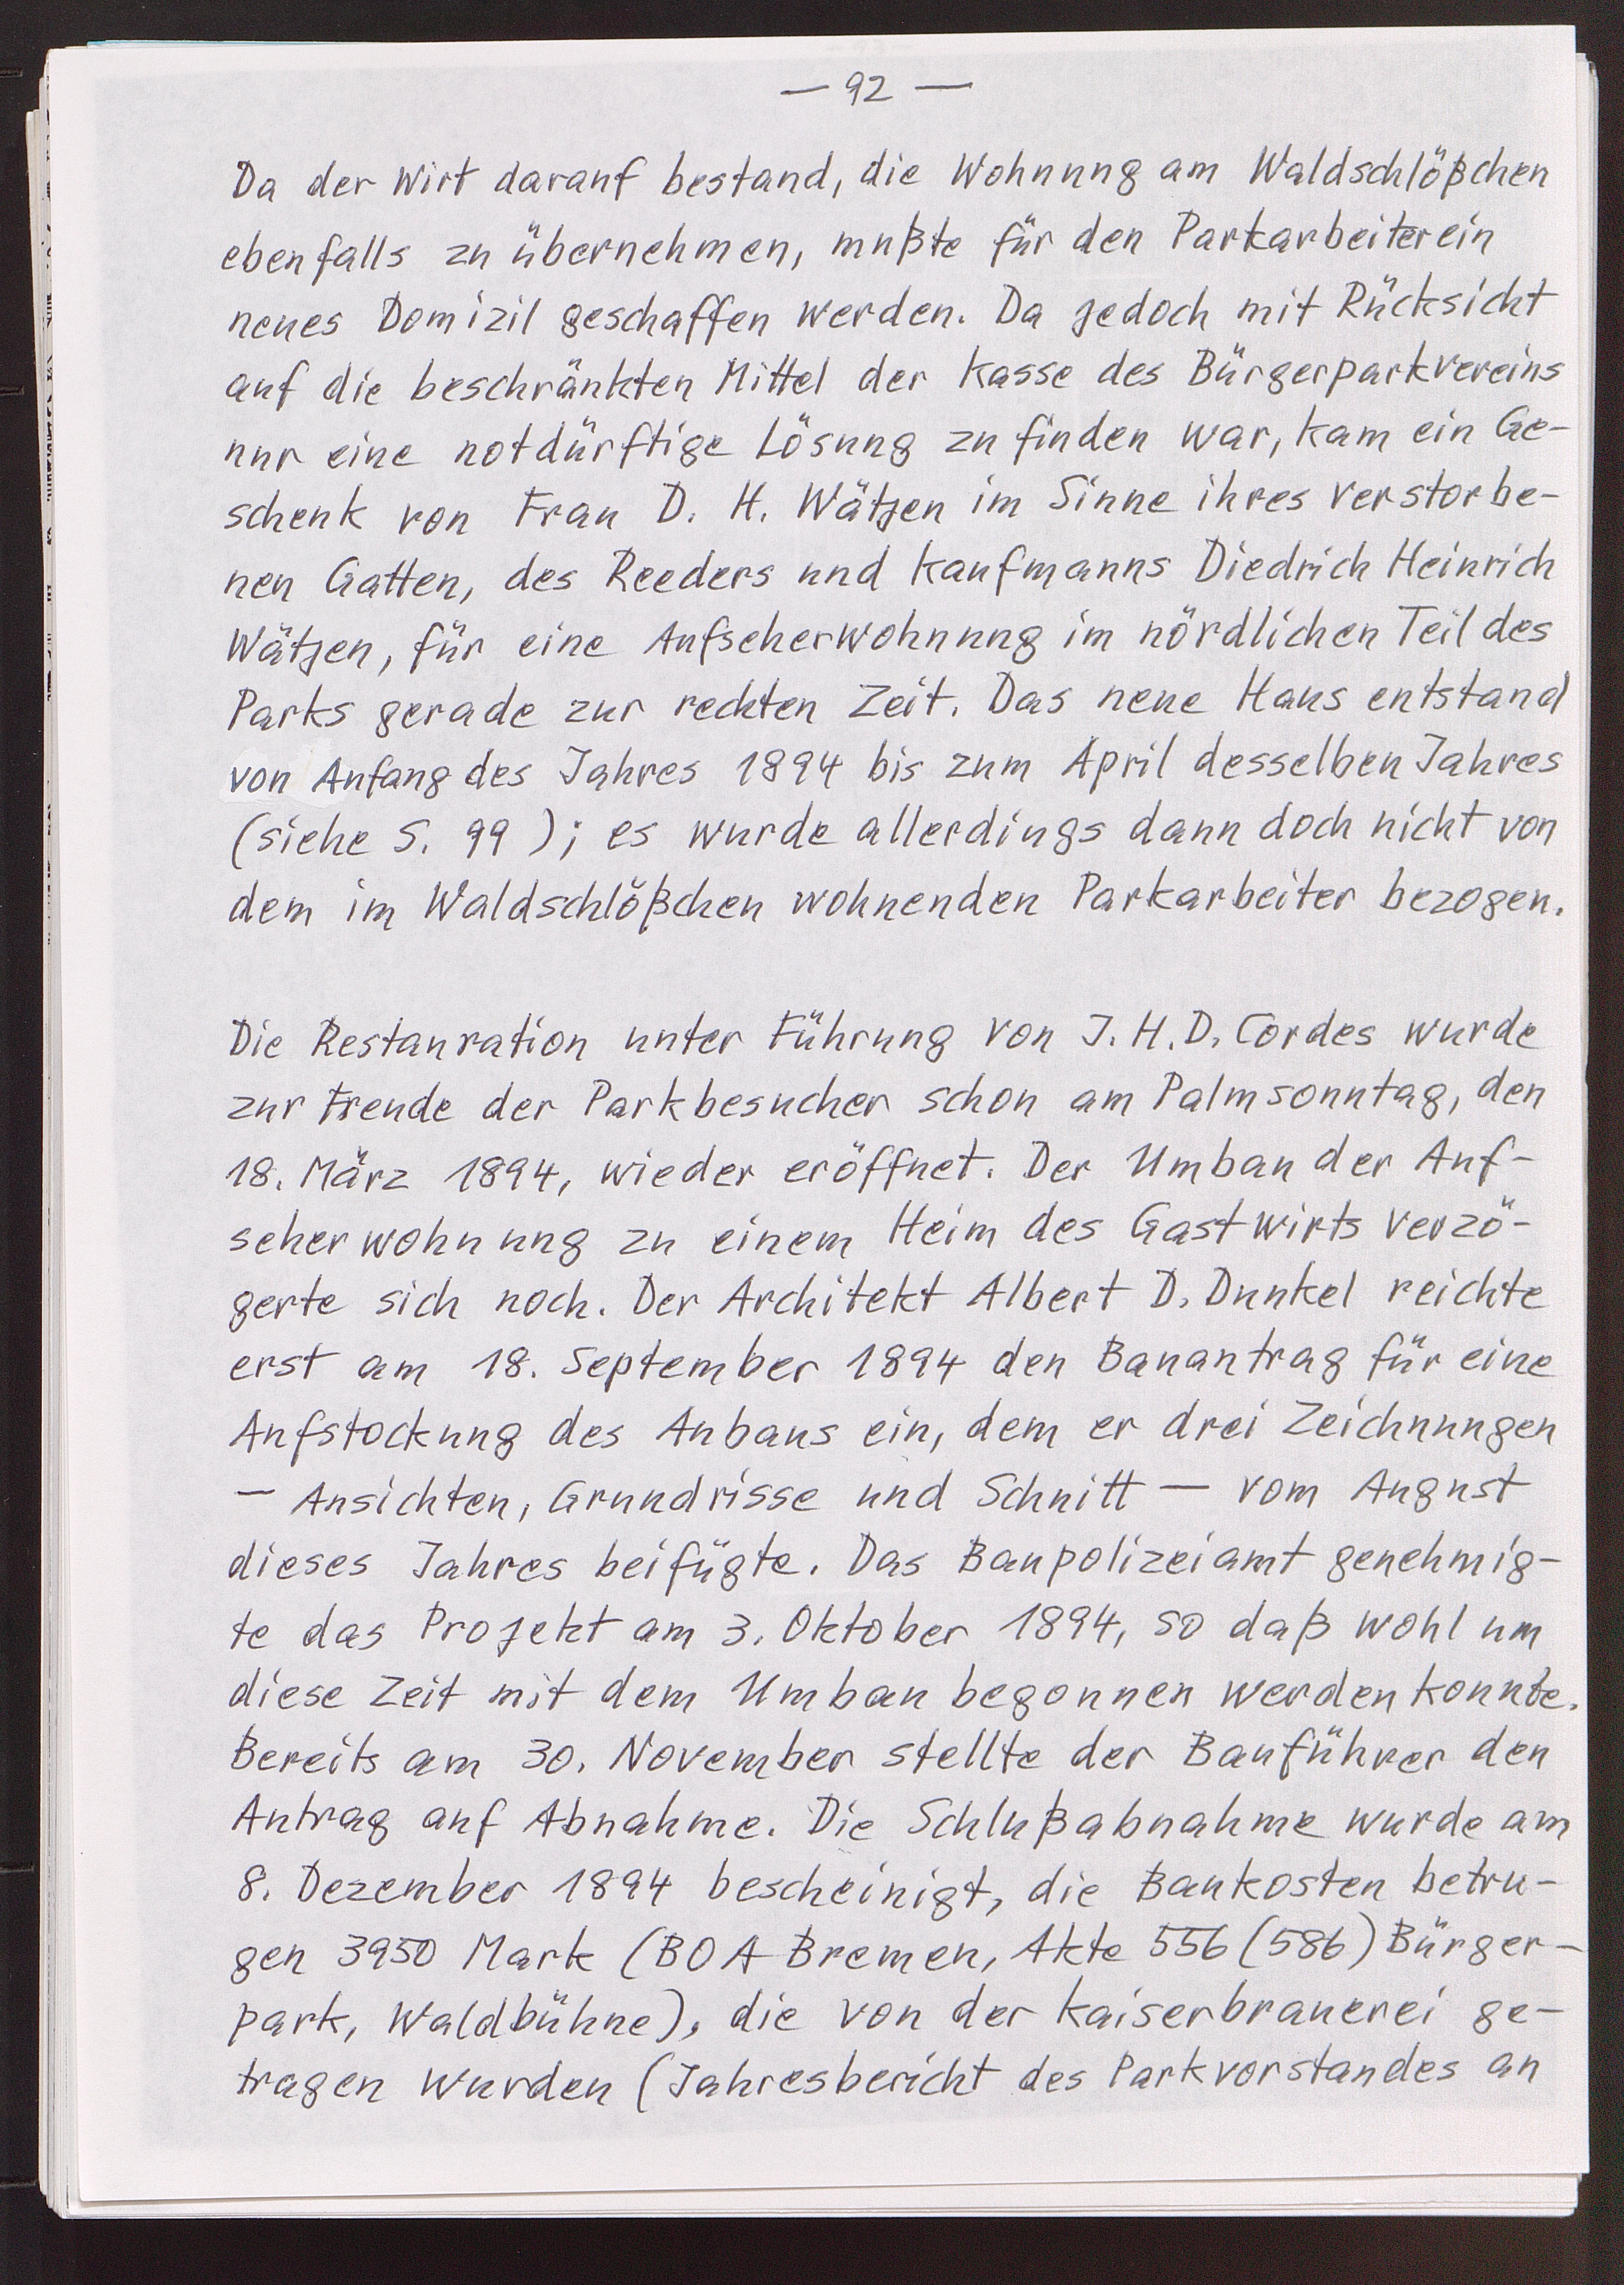 — 92 —
Da der Wirt darauf bestand, die Wohnung am Waldschlößchen
ebenfalls zu übernehmen, mußte für den Parkarbeiter ein
neues Domizil geschaffen werden. Da jedoch mit Rücksicht
auf die beschränkten Mittel der Kasse des Bürgerparkvereins
nur eine notdürftige Lösung zu finden war, kam ein Ge-
schenk von Frau D. H. Wätjen im Sinne ihres verstorbe-
nen Gatten, des Reeders und Kaufmanns Diedrich Heinrich
Wätjen, für eine Aufseherwohnung im nördlichen Teil des
Parks gerade zur rechten Zeit. Das neue Haus entstand
von Anfang des Jahres 1894 bis zum April desselben Jahres
(siehe S. 99 ); es wurde allerdings dann doch nicht von
dem im Waldschlößchen wohnenden Parkarbeiter bezogen.
Die Restauration unter Führung von J. H. D. Cordes wurde
zur Freude der Parkbesucher schon am Palmsonntag, den
18. März 1894, wieder eröffnet. Der Umbau der Auf-
seherwohnung zu einem Heim des Gastwirts verzö-
gerte sich noch. Der Architekt Albert D. Dunkel reichte
erst am 18. September 1894 den Bauantrag für eine
Aufstockung des Anbaus ein, dem er drei Zeichnungen
— Ansichten, Grundrisse und Schnitt — vom August
dieses Jahres beifügte. Das Baupolizeiamt genehmig-
te das Projekt am 3. Oktober 1894, so daß wohl um
diese Zeit mit dem Umbau begonnen werden konnte.
Bereits am 30. November stellte der Bauführer den
Antrag auf Abnahme. Die Schlußabnahme wurde am
8. Dezember 1894 bescheinigt, die Baukosten betru-
gen 3950 Mark (BOA Bremen, Akte 556 (586) Bürger-
park, Waldbühne), die von der Kaiserbrauerei ge-
tragen wurden (Jahresbericht des Parkvorstandes an